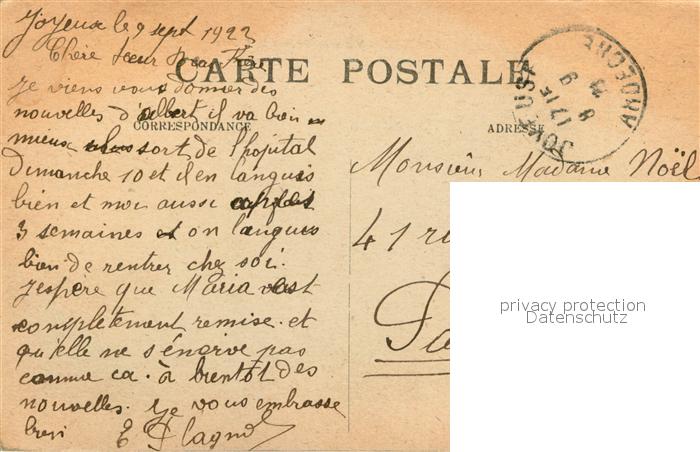 Joyeuse le 9 sept 1923
Chère Sœur Beau Frère
CARTE POSTALE
CORRESPONDANCE
ADRESSE
Je viens vous donner des
nouvelles d'albert il va bien
mieux sort de l'hopital
Dimanche 10 et il en languis
bien et moi aussi après
3 semaines on langues
bien de rentrer chez soi.
J'espère que Maria est
complètement remise. et
qu'elle ne s'énerve pas
comme ca. à bientôt des
nouvelles. Je vous embrasse
bien E Plagnol
JOYEUSE
ARDECHE
17 15
8 9
23
Monsieur Madame Noël
41 ru
Pa
privacy protection
Datenschutz